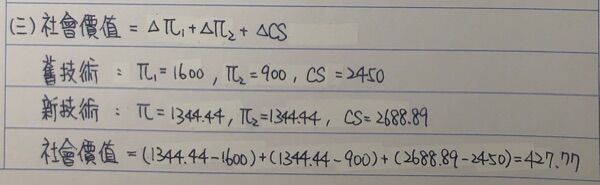 (三)社會價值 = Δπ₁+Δπ₂+ΔCS
舊技術 : π₁=1600 , π₂=900 , CS=2450
新技術 : π=1344.44 , π₂=1344.44 , CS=2688.89
社會價值=(1344.44-1600)+(1344.44-900)+(2688.89-2450)=427.77